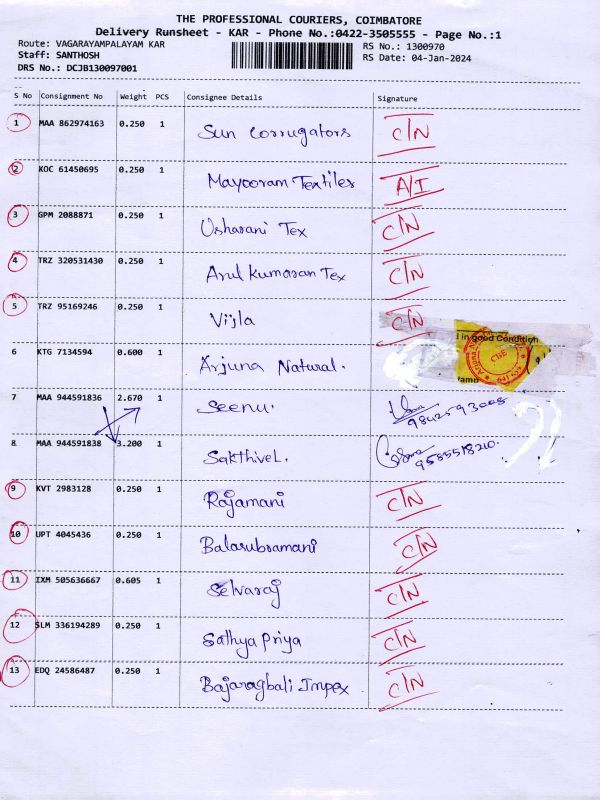 THE PROFESSIONAL COURIERS, COIMBATORE
Delivery Runsheet - KAR - Phone No.:0422-3505555 - Page No.:1
Route: VAGARAYAMPALAYAM KAR RS No.: 1300970
Staff: SANTHOSH RS Date: 04-Jan-2024
DRS No.: DCJB130097001
S No Consignment No Weight PCS Consignee Details Signature
1 MAA 862974163 0.250 1 Sun Corrugators C/N
2 KOC 61450695 0.250 1 Mayooram Textiles A/I
3 GPM 2088871 0.250 1 Usharani Tex C/N
4 TRZ 320531430 0.250 1 Arul kumaran Tex C/N
5 TRZ 95169246 0.250 1 Vijla C/N
in good Condition
6 KTG 7134594 0.600 1 Arjuna Natural. CBE
7 MAA 944591836 2.670 1 Seenu.
8 MAA 944591838 3.200 1 Sakthivel. 9585518210
9 KVT 2983128 0.250 1 Rajamani C/N
10 UPT 4045436 0.250 1 Balasubramani C/N
11 IXM 505636667 0.605 1 Selvaraj C/N
12 SLM 336194289 0.250 1 Sathya priya C/N
13 EDQ 24586487 0.250 1 Bajaragbali Impex C/N